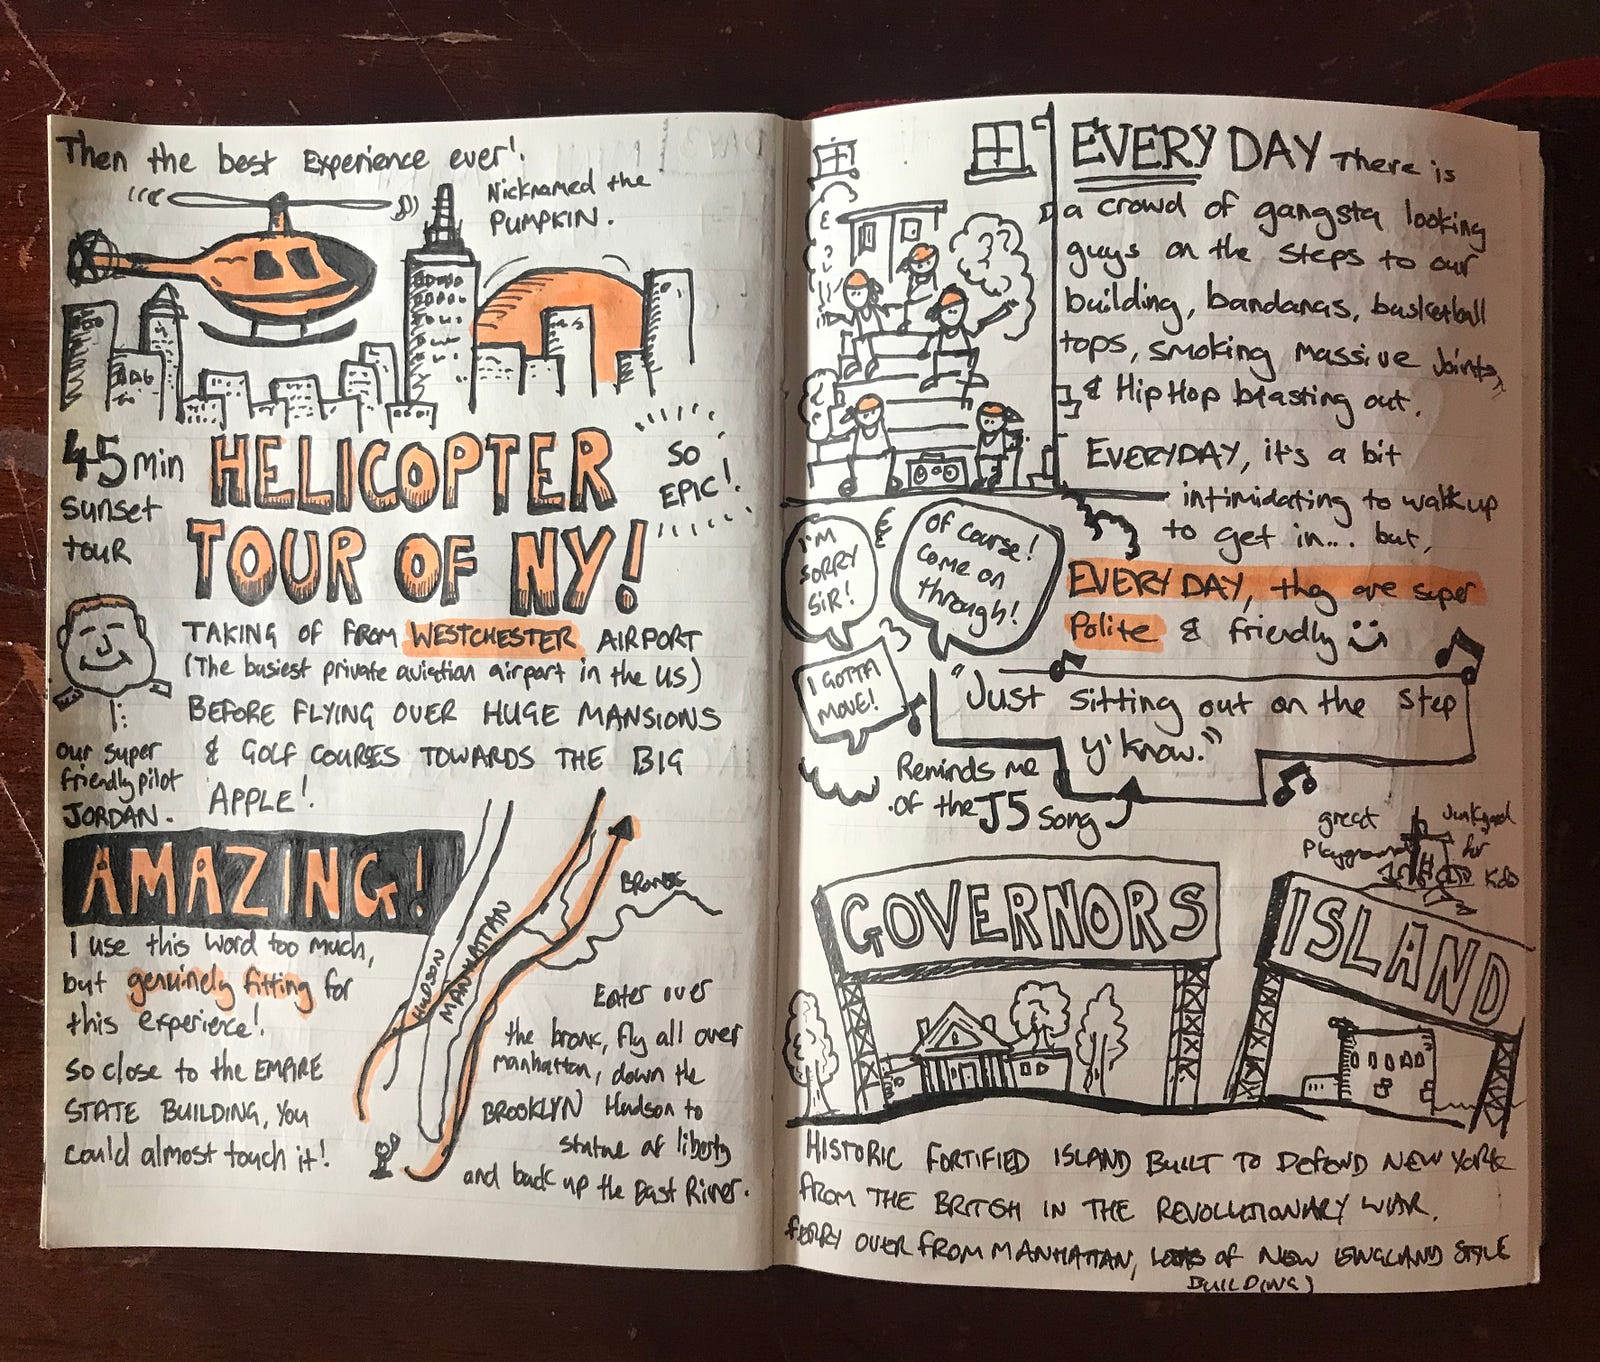 Then the best Experience ever!
Nicknamed the
PUMPKIN.
45 min
sunset
tour
HELICOPTER
TOUR OF NY!
SO
EPIC!
TAKING OF FROM WESTCHESTER AIRPORT
(The busiest private aviation airport in the US)
BEFORE FLYING OVER HUGE MANSIONS
& GOLF COURSES TOWARDS THE BIG
APPLE!
our super
friendly pilot
JORDAN.
AMAZING!
I use this word too much,
but genuinely fitting for
this experience!
So close to the EMPIRE
STATE BUILDING, you
could almost touch it!
HUDSON
MANHATTAN
BRONX
Enter over
the bronx, fly all over
manhattan, down the
BROOKLYN Hudson to
statue of liberty
and back up the East River.
EVERY DAY There is
a crowd of gangsta looking
guys on the steps to our
building, bandanas, basketball
tops, smoking massive joints,
& Hip Hop blasting out.
EVERYDAY, it's a bit
intimidating to walk up
to get in... but,
EVERY DAY, they are super
Polite & friendly
I'M
SORRY
SIR!
OF course!
come on
through!
I GOTTA
MOVE!
"Just sitting out on the step
y'know."
Reminds me
of the J5 song
great
Playground
Junkyard
for
Kids
GOVERNORS
ISLAND
HISTORIC FORTIFIED ISLAND BUILT TO DEFEND NEW YORK
FROM THE BRITISH IN THE REVOLUTIONARY WAR.
FERRY OVER FROM MANHATTAN, LOTS OF NEW ENGLAND STYLE
BUILDING)